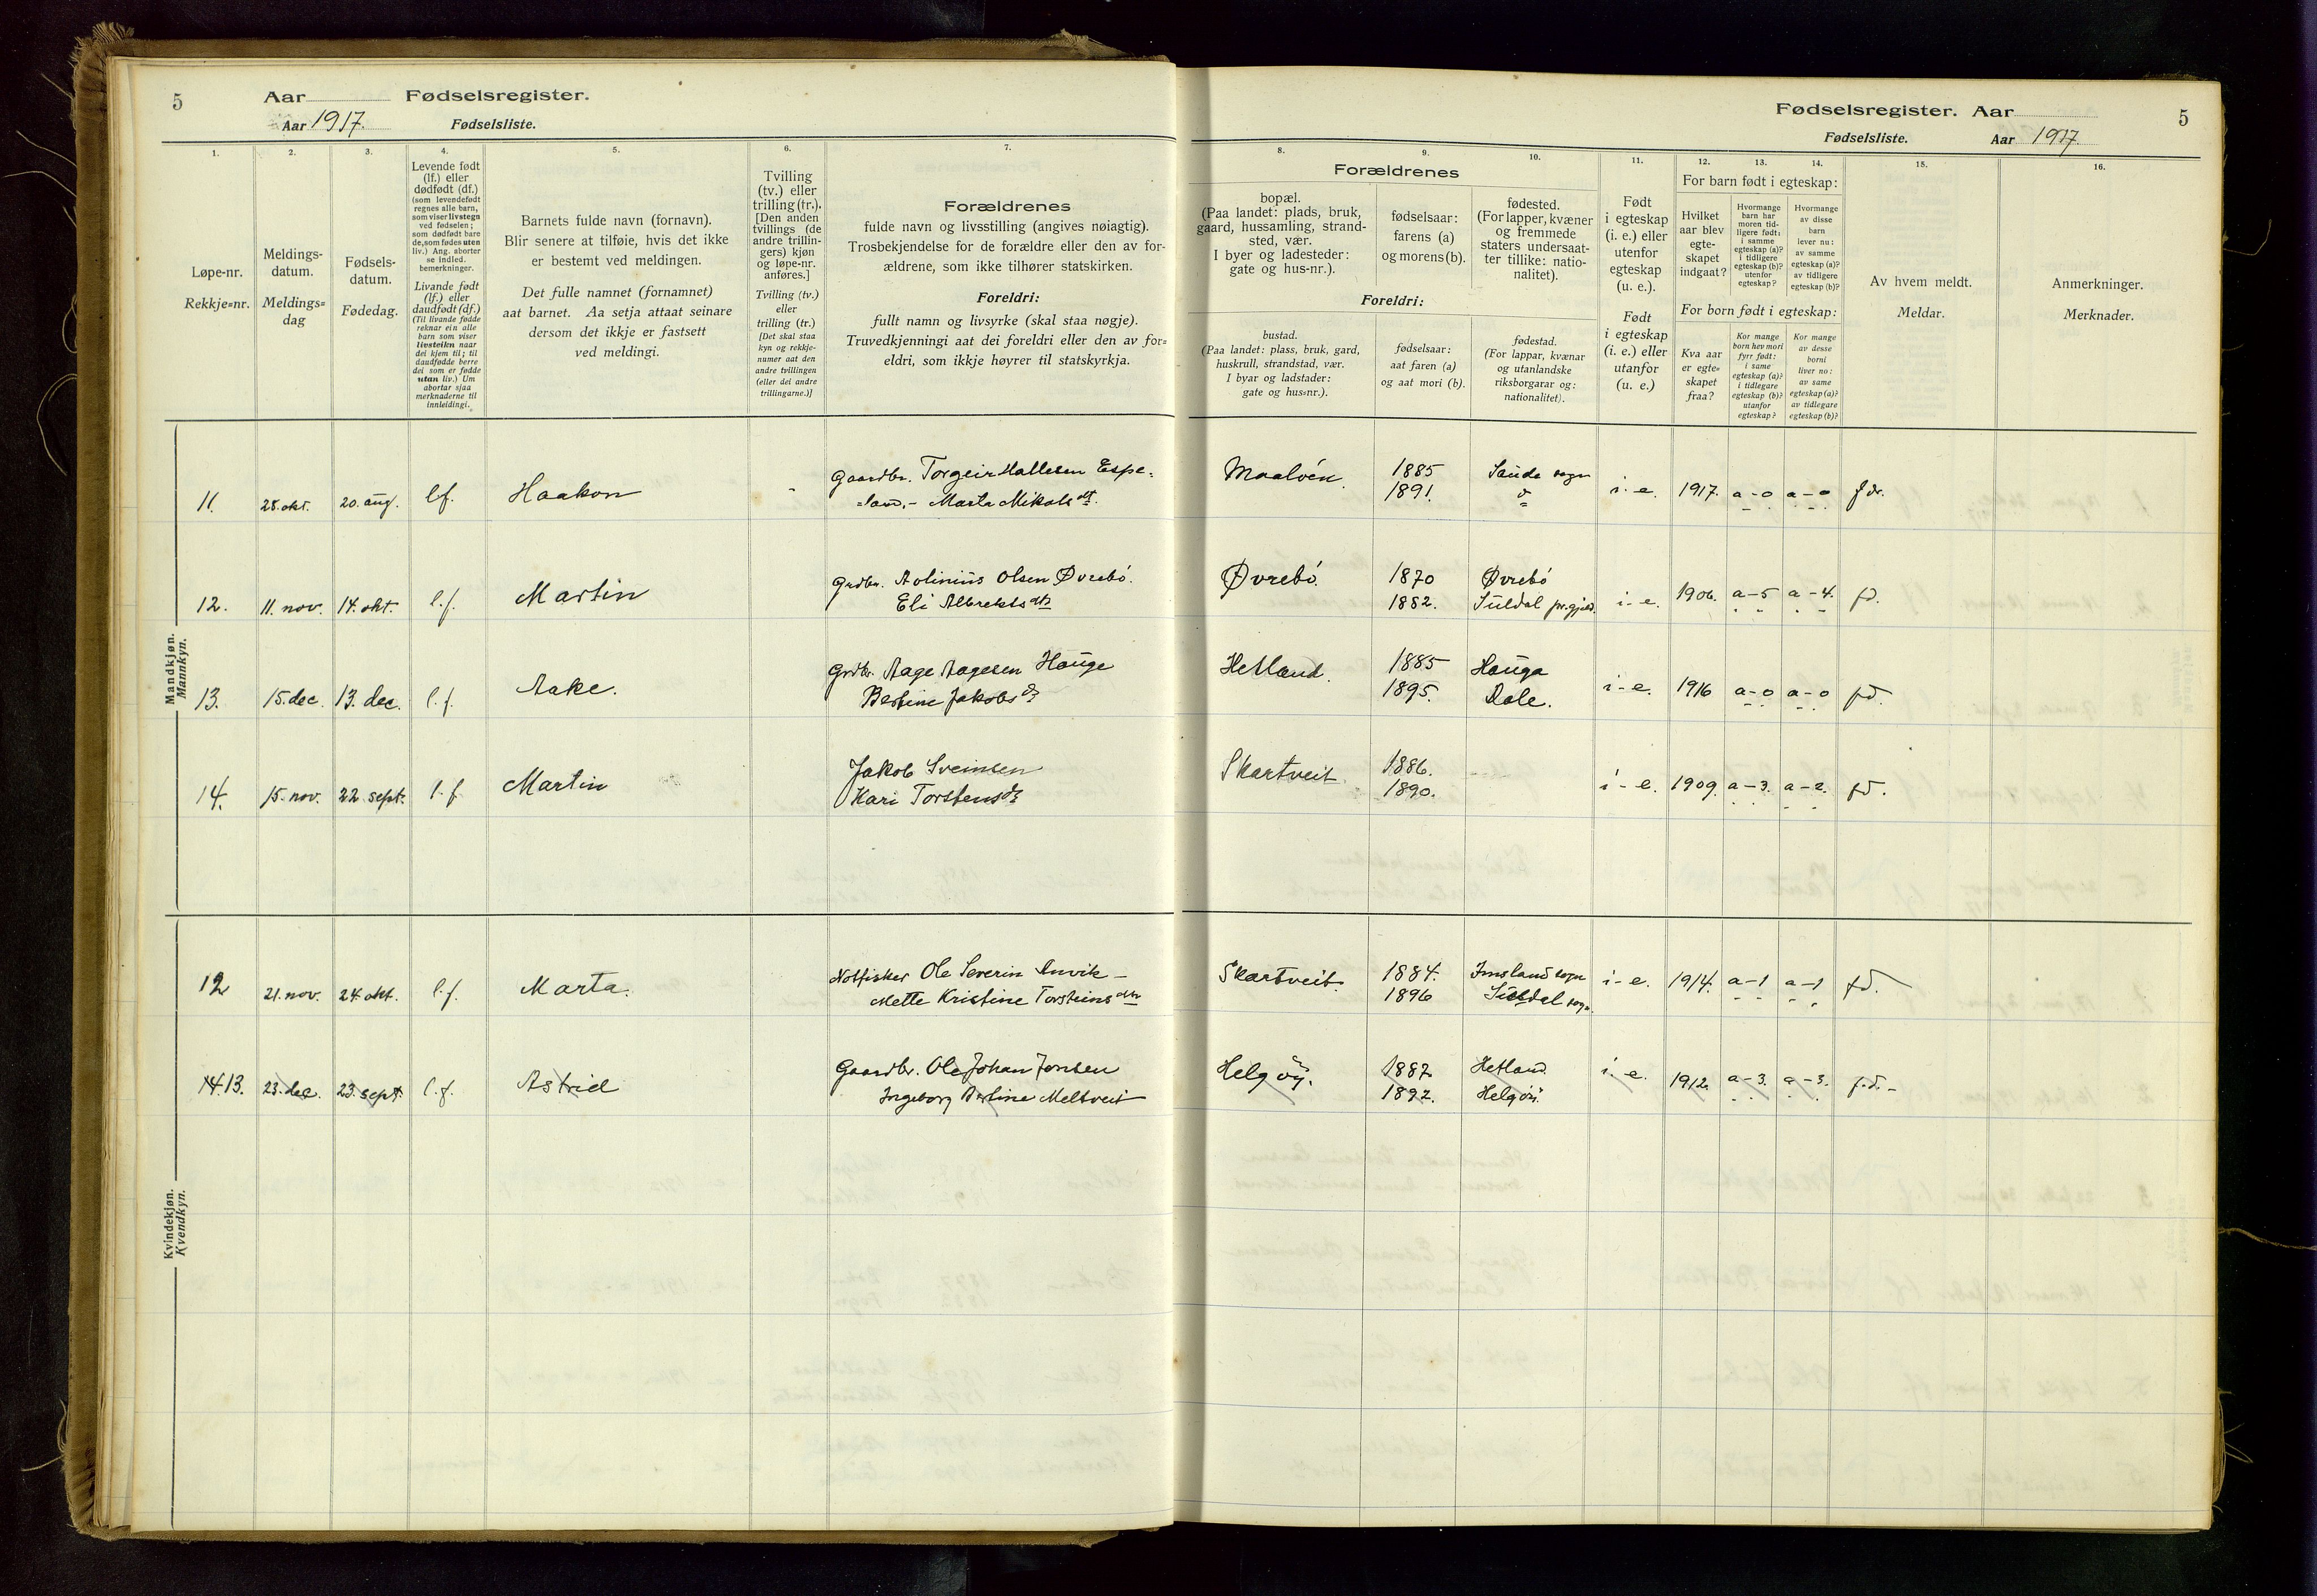 5 Aar Fødselsregister.
Aar 1917. Fødselsliste.
Fødselsregister. Aar 5
Fødselsliste. Aar 1917.
1.
Løpe-nr.
Rekkje=nr.
2.
Meldings-
datum.
Meldings=
dag
3.
Fødsels-
datum.
Fødedag.
4.
Levende født
(lf.) eller
dødfødt (df.)
(som levendefødt
regnes alle barn,
som viser livstegn
ved fødselen;
som dødfødt bare
de, som fødes uten
liv.) Ang. aborter
se indled.
bemerkninger.
Livande født
(lf.) eller
daudfødt (df.)
(Til livande fødde
reknar ein alle
barn som viser
livsteikn naar
dei kjem til; til
daudfødde berre
dei som er fødde
utan liv.) Um
abortar sjaa
merknaderne til
innleidingi.
5.
Barnets fulde navn (fornavn).
Blir senere at tilføie, hvis det ikke
er bestemt ved meldingen.
Det fulle namnet (fornamnet)
aat barnet. Aa setja attaat seinare
dersom det ikkje er fastsett
ved meldingi.
6.
Tvilling
(tv.) eller
trilling (tr.).
[Den anden
tvillings (de
andre trillin-
gers) kjøn
og løpe-nr.
anføres.]
Tvilling (tv.)
eller
trilling (tr.)
[Det skal staa
kyn og rekkje-
numer aat den
andre tvillingen
(eller dei andre
trillingarne.)]
7.
Forældrenes
fulde navn og livsstilling (angives nøiagtig).
Trosbekjendelse for de forældre eller den av for-
ældrene, som ikke tilhører statskirken.
Foreldri:
fullt namn og livsyrke (skal staa nøgje).
Truvedkjenningi aat dei foreldri eller den av for=
eldri, som ikkje høyrer til statskyrkja.
Forældrenes
8.
bopæl.
(Paa landet: plads, bruk,
gaard, hussamling, strand-
sted, vær.
I byer og ladesteder:
gate og hus-nr.).
Foreldri:
bustad.
(Paa landet: plass, bruk, gard,
huskrull, strandstad, vær.
I byar og ladstader:
gate og hus=nr.).
9.
fødselsaar:
farens (a)
og morens (b).
fødselsaar:
aat faren (a)
og aat mori (b).
10.
fødested.
(For lapper, kvæner
og fremmede
staters undersaat-
ter tillike: natio-
nalitet).
fødestad.
(For lappar, kvænar
og utanlandske
riksborgarar og:
nationalitet).
11.
Født
i egteskap
(i. e.) eller
utenfor
egteskap
(u. e.).
Født
i egteskap
(i. e.) eller
utanfor
(u. e.)
For barn født i egteskap:
12.
Hvilket
aar blev
egte-
skapet
indgaat?
For born født i egteskap:
Kva aar
er egte=
skapet
fraa?
13.
Hvormange
barn har
moren tid-
ligere født:
i samme
egteskap (a)?
i tidligere
egteskap (b)?
utenfor
egteskap?
Kor mange
born hev mori
fyrr født:
i same
egteskap (a)?
i tidlegare
egteskap (b)?
utanfor
egteskap?
14.
Hvormange
av disse
barn
lever nu:
av samme
egteskap (a)?
av tidligere
egteskap (b)?
Kor mange
av desse
borni
liver no:
av same
egteskap (a)?
av tidlegare
egteskap (b)?
15.
Av hvem meldt.
Meldar.
16.
Anmerkninger.
Merknader.
Mandkjøn.
Mannkyn.
11. 28. okt. 20. aug. lf. Haakon Gaardbr. Torgeir Hallesen Espe=
=land. - Marta Mikals dt. Maalvén. 1885 Sauda sogn
1891. i. e. 1917. a-0 a-0
12. 11. nov. 14. okt. l. f. Martin Grdbr. Olsen Øvrebó.
Eli Albrekts Øvrebó. 1870 Øvrebó
1882. Suldal pr.gjeld. i. e. 1906. a-5 a-4. fd.
13. 15. dec. 13. dec. l. f. Aake. Grdbr. Aage Aagesen Hauge
Bertine Jakobs d. Hetland. 1885 Hauga
1895. Dale. i-e. 1916 a-0 a-0 fd.
14. 15. nov. 22. sept. l. f. Martin Jakob Sveinsen
Kari Torstens d. Skartveit 1886.
1890. i-e. 1909. a-3. a-2. fd.
Kvindekjøn.
Kvendkyn.
12 21. nov. 24. okt. l. f. Marta. Notfisker Ole Severin -
Mette Kristine Torsteins Skartveit. 1884. Imsland sogn
1896 Suldal sogn. i-e. 1914. a-1 a-1 fd.
14. 13. 23. dec. 23. sept. l. f. Astrid Gaardbr. Ole Johan Jonsen
Ingeborg Bertine Meltveit Helgöy. 1887 Hetland.
1892. Helgöy. i. e. 1912. a-3. a-3. f.d.-